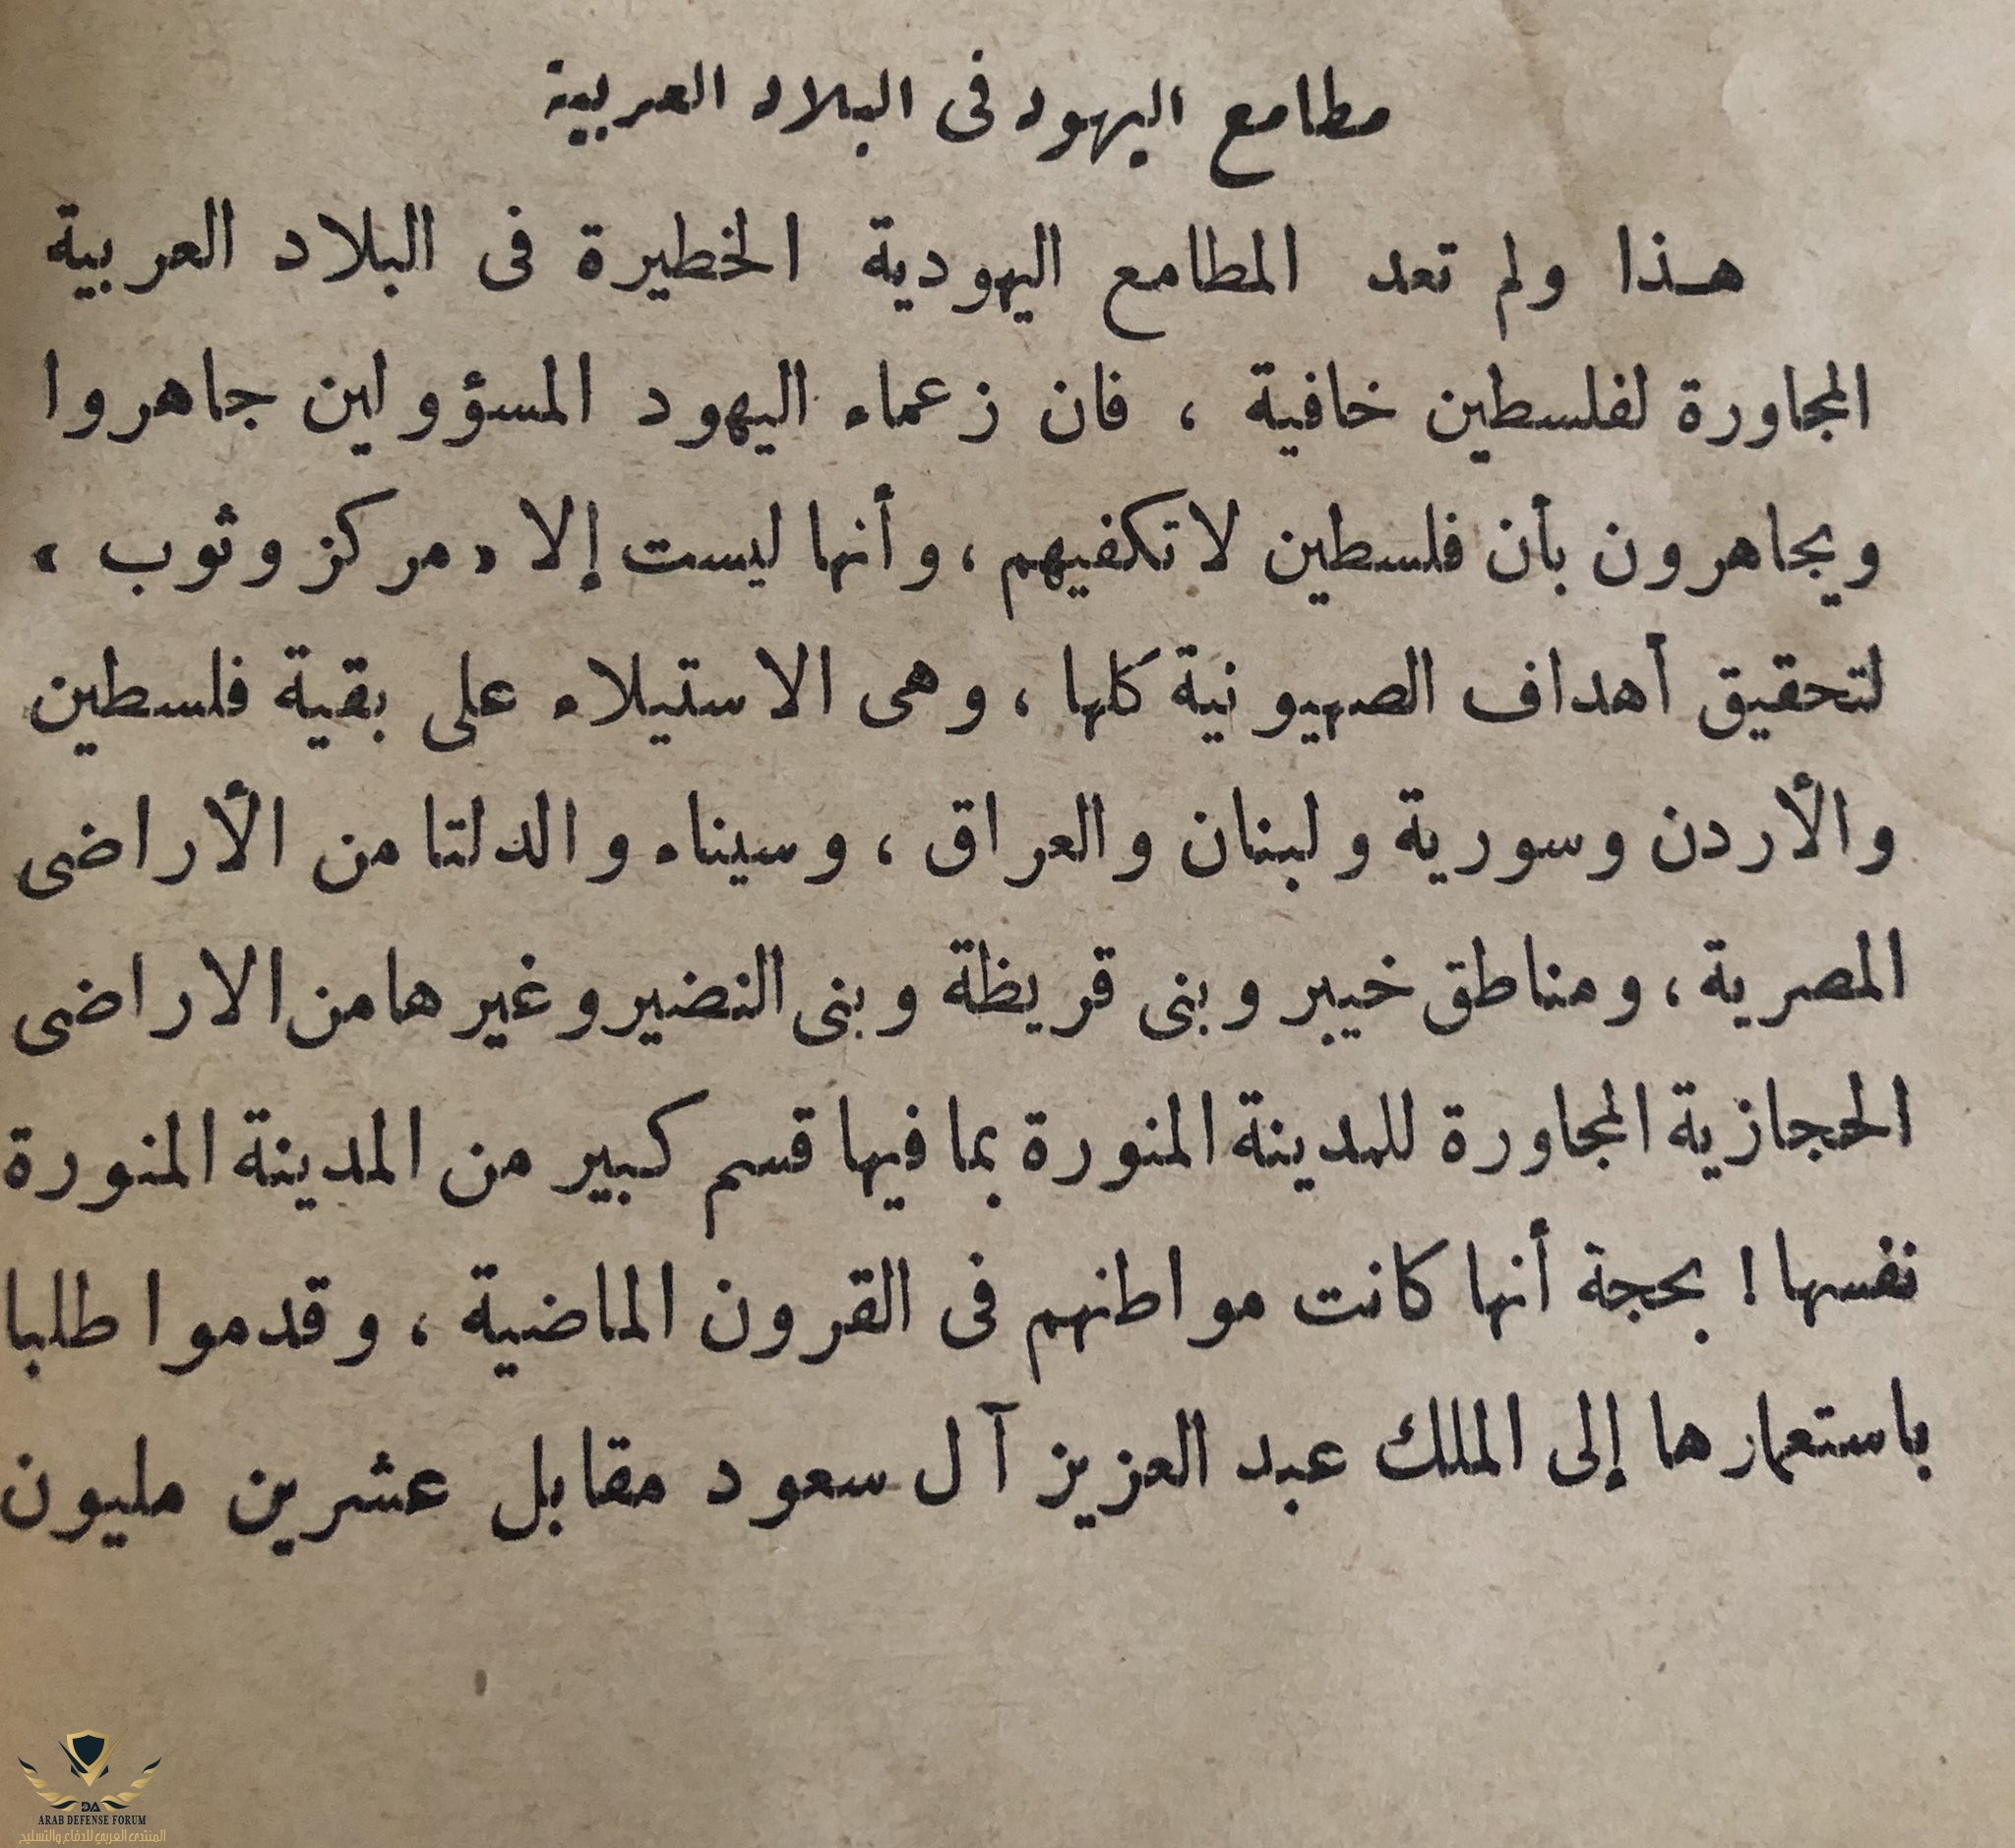 مطامع اليهود فى البلاد العربية
هـذا ولم تعد المطامع اليهودية الخطيرة فى البلاد العربية
المجاورة لفلسطين خافية ، فان زعماء اليهود المسؤولين جاهروا
ويجاهرون بأن فلسطين لا تكفيهم ، وأنها ليست إلا « مركز وثوب »
لتحقيق أهداف الصهيونية كلها ، وهى الاستيلاء على بقية فلسطين
والأردن وسورية ولبنان والعراق ، وسيناء والدلتا من الأراضى
المصرية ، ومناطق خيبر وبنى قريظة وبنى النضير وغيرها من الاراضى
الحجازية المجاورة للمدينة المنورة بما فيها قسم كبير من المدينة المنورة
نفسها ! بحجة أنها كانت مواطنهم فى القرون الماضية ، وقدموا طلبا
باستعمارها إلى الملك عبد العزيز آل سعود مقابل عشرين مليون
DA
ARAB DEFENSE FORUM
المنتدى العربي للدفاع والتسليح